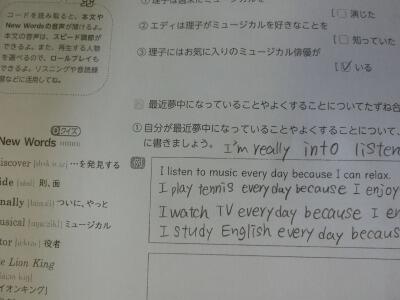 ①理子は週末にミュージカルを
[□ 演じた
②エディは理子がミュージカルを好きなことを
[□ 知っていた
③理子にはお気に入りのミュージカル俳優が
[☑ いる
コードを読み取ると、本文や
New Wordsの音声が聞けるよ。
本文の音声は、スピード調節が
できるよ。また、再生する人物
を選べるので、ロールプレイも
できるよ。リスニングや音読練
習などに活用してね。
最近夢中になっていることやよくすることについてたずね合
①自分が最近夢中になっていることやよくすることについて、
に書きましょう。 I'm really into listen
例
I listen to music every day because I can relax.
I play tennis everyday because I enjoy
I watch TV everyday because I en
I study English every day becaus
クイズ
New Words
iscover …を発見する
ide 則、面
nally ついに、やっと
usical ミュージカル
tor 役者
e Lion King
イオンキング』